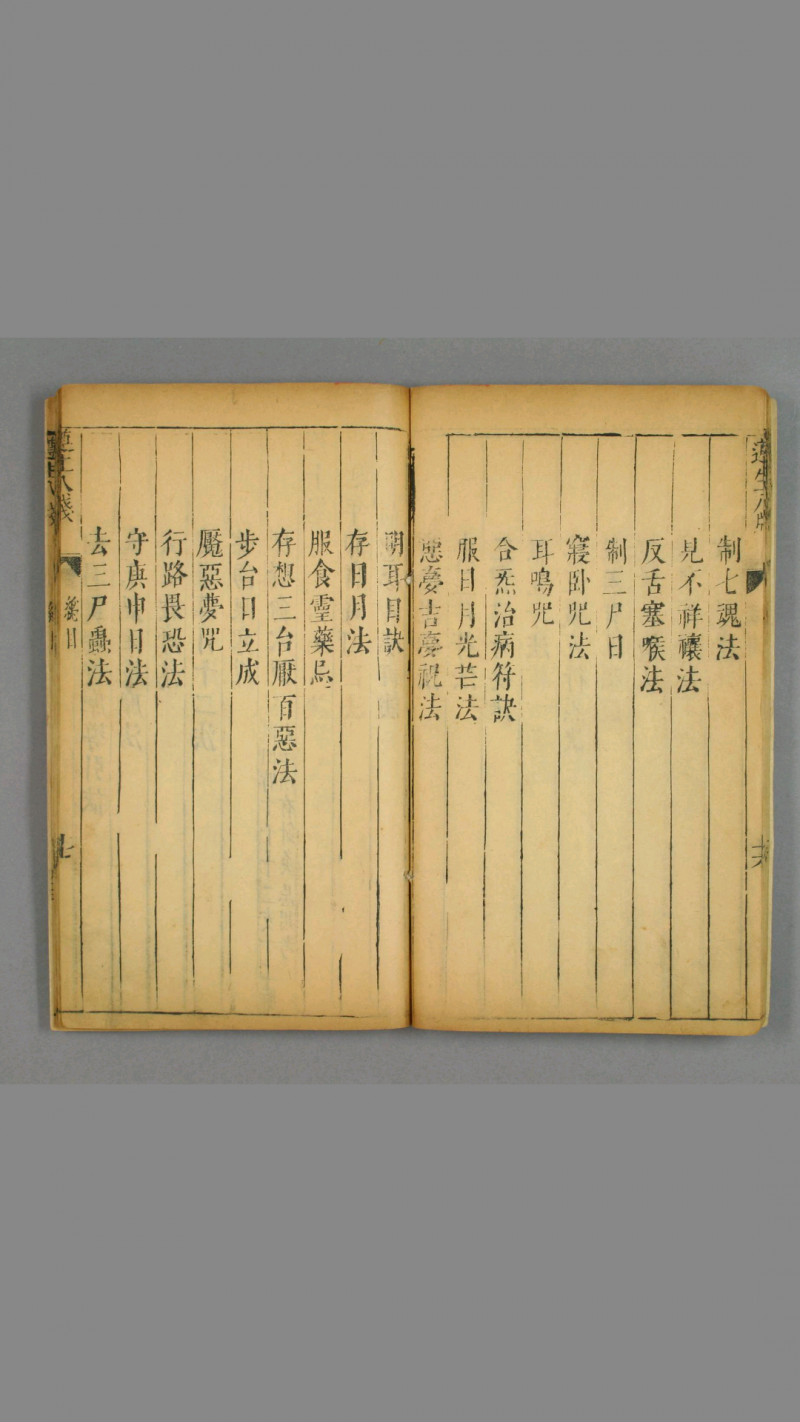 遵生八牋
十六
制七魂法
見不祥禳法
反舌塞喉法
制三尸日
寢卧咒法
耳鳴咒
合炁治病符訣
服日月光芒法
惡夢吉夢祝法
明耳目訣
存日月法
服食靈藥
存想三台厭百惡法
步台日立成
魘惡夢咒
行路畏恐法
守庚申日法
去三尸蟲法
八牋
目
十七